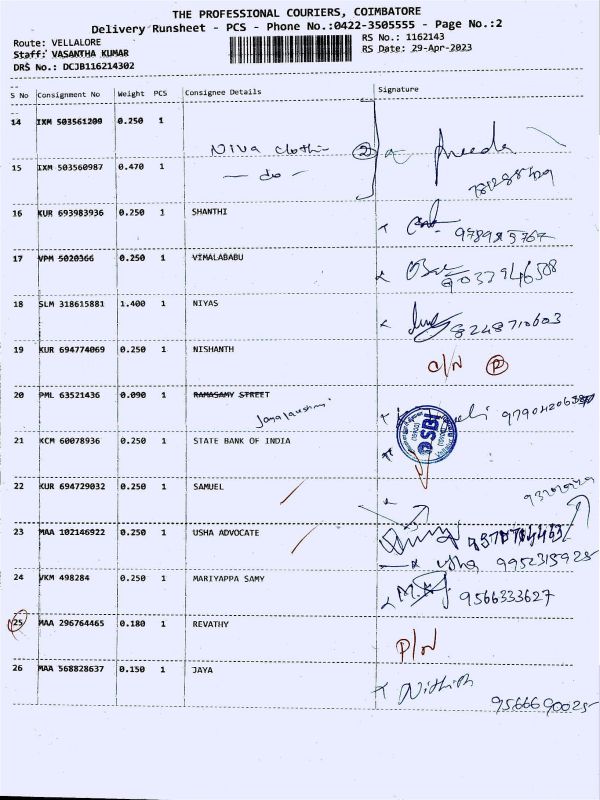 THE PROFESSIONAL COURIERS, COIMBATORE
Delivery Runsheet - PCS - Phone No.:0422-3505555 - Page No.:2
Route: VELLALORE
RS No.: 1162143
Staff: VASANTHA KUMAR
RS Date: 29-Apr-2023
DRS No.: DCJB116214302
S No Consignment No Weight PCS Consignee Details Signature
14 IXM 503561209 0.250 1
Niva clothi 2
15 IXM 503560987 0.470 1 - do -
16 KUR 693983936 0.250 1 SHANTHI
17 VPM 5020366 0.250 1 VIMALABABU
9032946508
18 SLM 318615881 1.400 1 NIYAS
8248710603
19 KUR 694774069 0.250 1 NISHANTH
C/N P
20 PML 63521436 0.090 1 RAMASAMY STREET
21 KCM 60078936 0.250 1 STATE BANK OF INDIA SBI
22 KUR 694729032 0.250 1 SAMUEL
23 MAA 102146922 0.250 1 USHA ADVOCATE
usha 9952315925
24 VKM 498284 0.250 1 MARIYAPPA SAMY
9566333627
25 MAA 296764465 0.180 1 REVATHY
P/N
26 MAA 568828637 0.150 1 JAYA
Nithith
9566690025